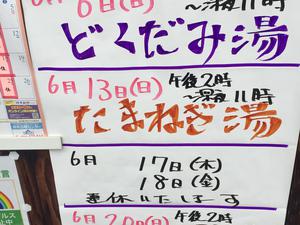 6日(日) ~深夜11時
どくだみ湯
6月13日(日) 午後2時
~深夜11時
たまねぎ湯
6月 17日(木)
18日(金)
連休いたします
6月20日(日) 午後2時